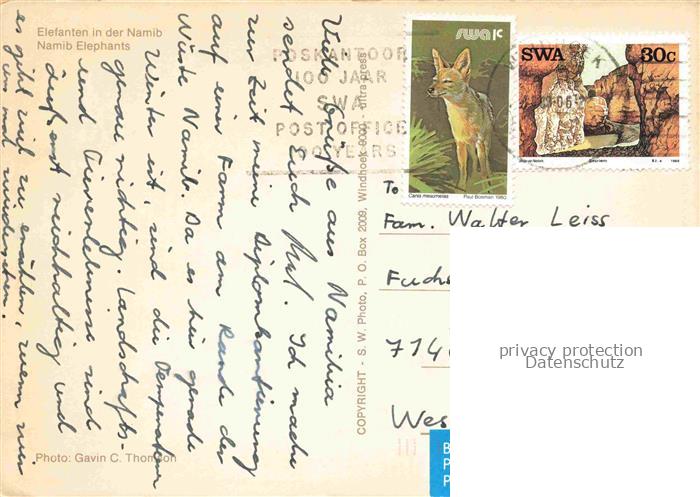 Elefanten in der Namib
Namib Elephants
Viele Grüße aus Namibia
sendet Euch Ich mache
zur Zeit meine Diplomkartierung
auf einer Farm am Rande der
Wüste Namib. Da es hier gerade
Winter ist, sind die Temperaturen
genau richtig. Landschafts-
und Tiererlebnisse sind
äußerst reichhaltig und
es gibt viel zu erzählen, wenn wir
uns mal wiedersehen.
Photo: Gavin C. Thomson
COPYRIGHT - S. W. Photo, P. O. Box 2009, Windhoek 9000 - ultra press
POSKANTOOR
100 JAAR
SWA
POST OFFICE
100 YEARS
swa 1c
Canis mesomelas Paul Bosman 1980
SWA 30c
To
Fam. Walter Leiss
Fuchs
714
Wes
privacy protection
Datenschutz
B
P
P